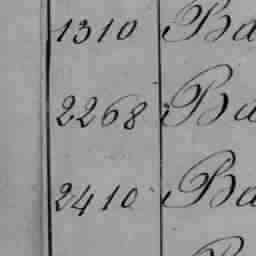 1310 Ba
2268 Ba
2410 Ba